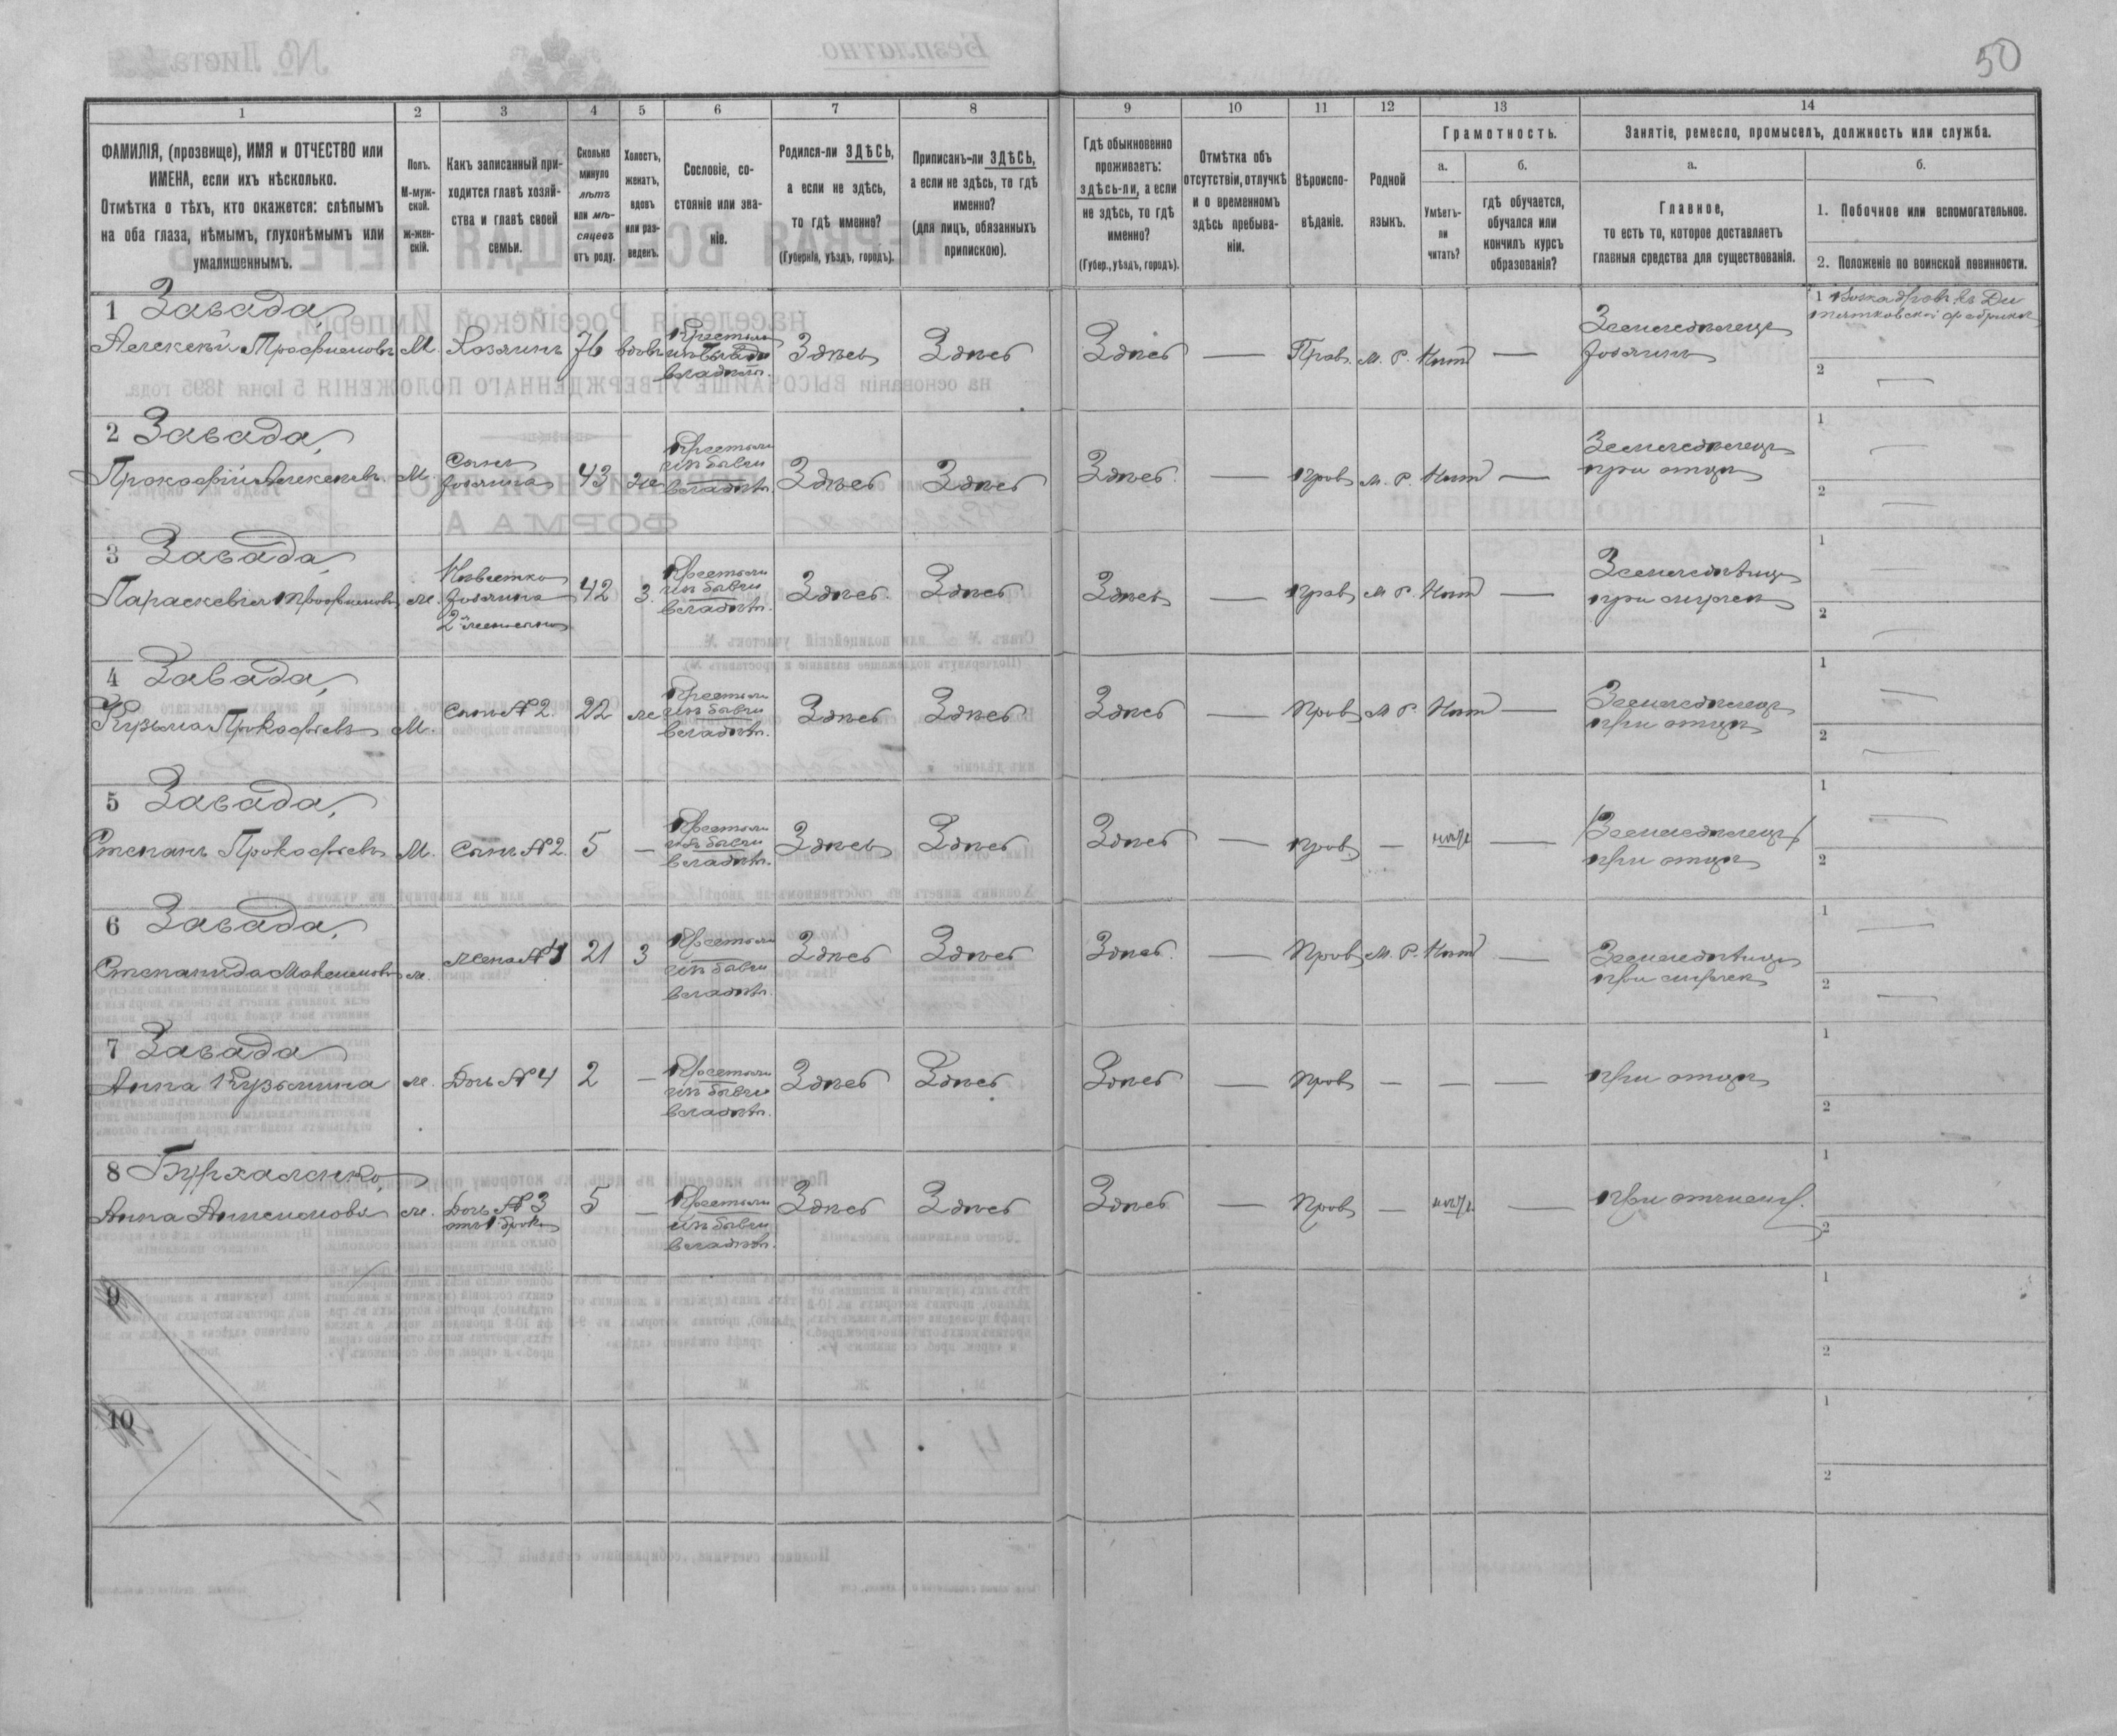 50
1 2 3 4 5 6 7 8 9 10 11 12 13 14
ФАМИЛІЯ, (прозвище), ИМЯ и ОТЧЕСТВО или
ИМЕНА, если ихъ нѣсколько.
Отмѣтка о тѣхъ, кто окажется: слѣпымъ
на оба глаза, нѣмымъ, глухонѣмымъ или
умалишеннымъ.
Полъ.
М-муж-
ской.
ж-жен-
скій.
Какъ записанный при-
ходится главѣ хозяй-
ства и главѣ своей
семьи.
Сколько
минуло
лѣтъ
или мѣ-
сяцевъ
отъ роду.
Холостъ,
женатъ,
вдовъ
или раз-
веденъ.
Сословіе, со-
стояніе или зва-
ніе.
Родился-ли ЗДѢСЬ,
а если не здѣсь,
то гдѣ именно?
(Губернія, уѣздъ, городъ).
Приписанъ-ли ЗДѢСЬ,
а если не здѣсь, то гдѣ
именно?
(для лицъ, обязанныхъ
припискою).
Гдѣ обыкновенно
проживаетъ:
здѣсь-ли, а если
не здѣсь, то гдѣ
именно?
(Губер., уѣздъ, городъ).
Отмѣтка объ
отсутствіи, отлучкѣ
и о временномъ
здѣсь пребыва-
ніи.
Вѣроиспо-
вѣданіе.
Родной
языкъ.
Грамотность.
а.
Умѣетъ-
ли
читать?
б.
гдѣ обучается,
обучался или
кончилъ курсъ
образованія?
Занятіе, ремесло, промыселъ, должность или служба.
а.
Главное,
то есть то, которое доставляетъ
главныя средства для существованія.
б.
1. Побочное или вспомогательное.
2. Положеніе по воинской повинности.
1 Завада,
Алексѣй Трофимовъ М. Хозяинъ 76 вдовъ Крестьян Здѣсь Здѣсь Здѣсь — Прав. М. Р. Нѣтъ —
владѣл.
Земледѣлецъ
хозяинъ
1
2 —
2 Завада,
Прокофій Алексѣевъ М. Сынъ
хозяина 43 же Крестьян
инъ бывш
владѣл. Здѣсь Здѣсь Здѣсь — Прав М. Р. Нѣтъ —
Земледѣлецъ
при отцѣ
1 —
2 —
3 Завада,
Параскевія Трофимова ж. Невѣстка
хозяина
42 з. Крестьян
инъ бывш
владѣл. Здѣсь Здѣсь Здѣсь — Прав М. Р. Нѣтъ —
Земледѣлица
при мужѣ
1 —
2 —
4 Завада,
Кузьма Прокофьевъ М. Сынъ № 2. 22 же Крестьян
инъ бывш
владѣл. Здѣсь Здѣсь Здѣсь — Прав М. Р. Нѣтъ —
Земледѣлецъ
при отцѣ
1 —
2 —
5 Завада,
Степанъ Прокофьевъ М. Сынъ № 2. 5 — Крестьян
инъ бывш
владѣл. Здѣсь Здѣсь Здѣсь — Прав — —
(Земледѣлецъ)
при отцѣ
1 —
2
6 Завада,
Степанида Максимова ж. жена № 4 21 з Крестьян
инъ бывш
владѣл. Здѣсь Здѣсь Здѣсь — Прав М. Р. Нѣтъ —
Земледѣлица
при мужѣ
1 —
2 —
7 Завада
Анна Кузьмина ж. Дочь № 4 2 — Крестьян
инъ бывш
владѣл. Здѣсь Здѣсь Здѣсь — Прав — — —
при отцѣ
1
2
8
Анна ж. Дочь № 3
отъ 1 брака 5 — Крестьян
инъ бывш
владѣл. Здѣсь Здѣсь Здѣсь — Прав — —
при отчимѣ.
1
2
9
1
2
10
1
2